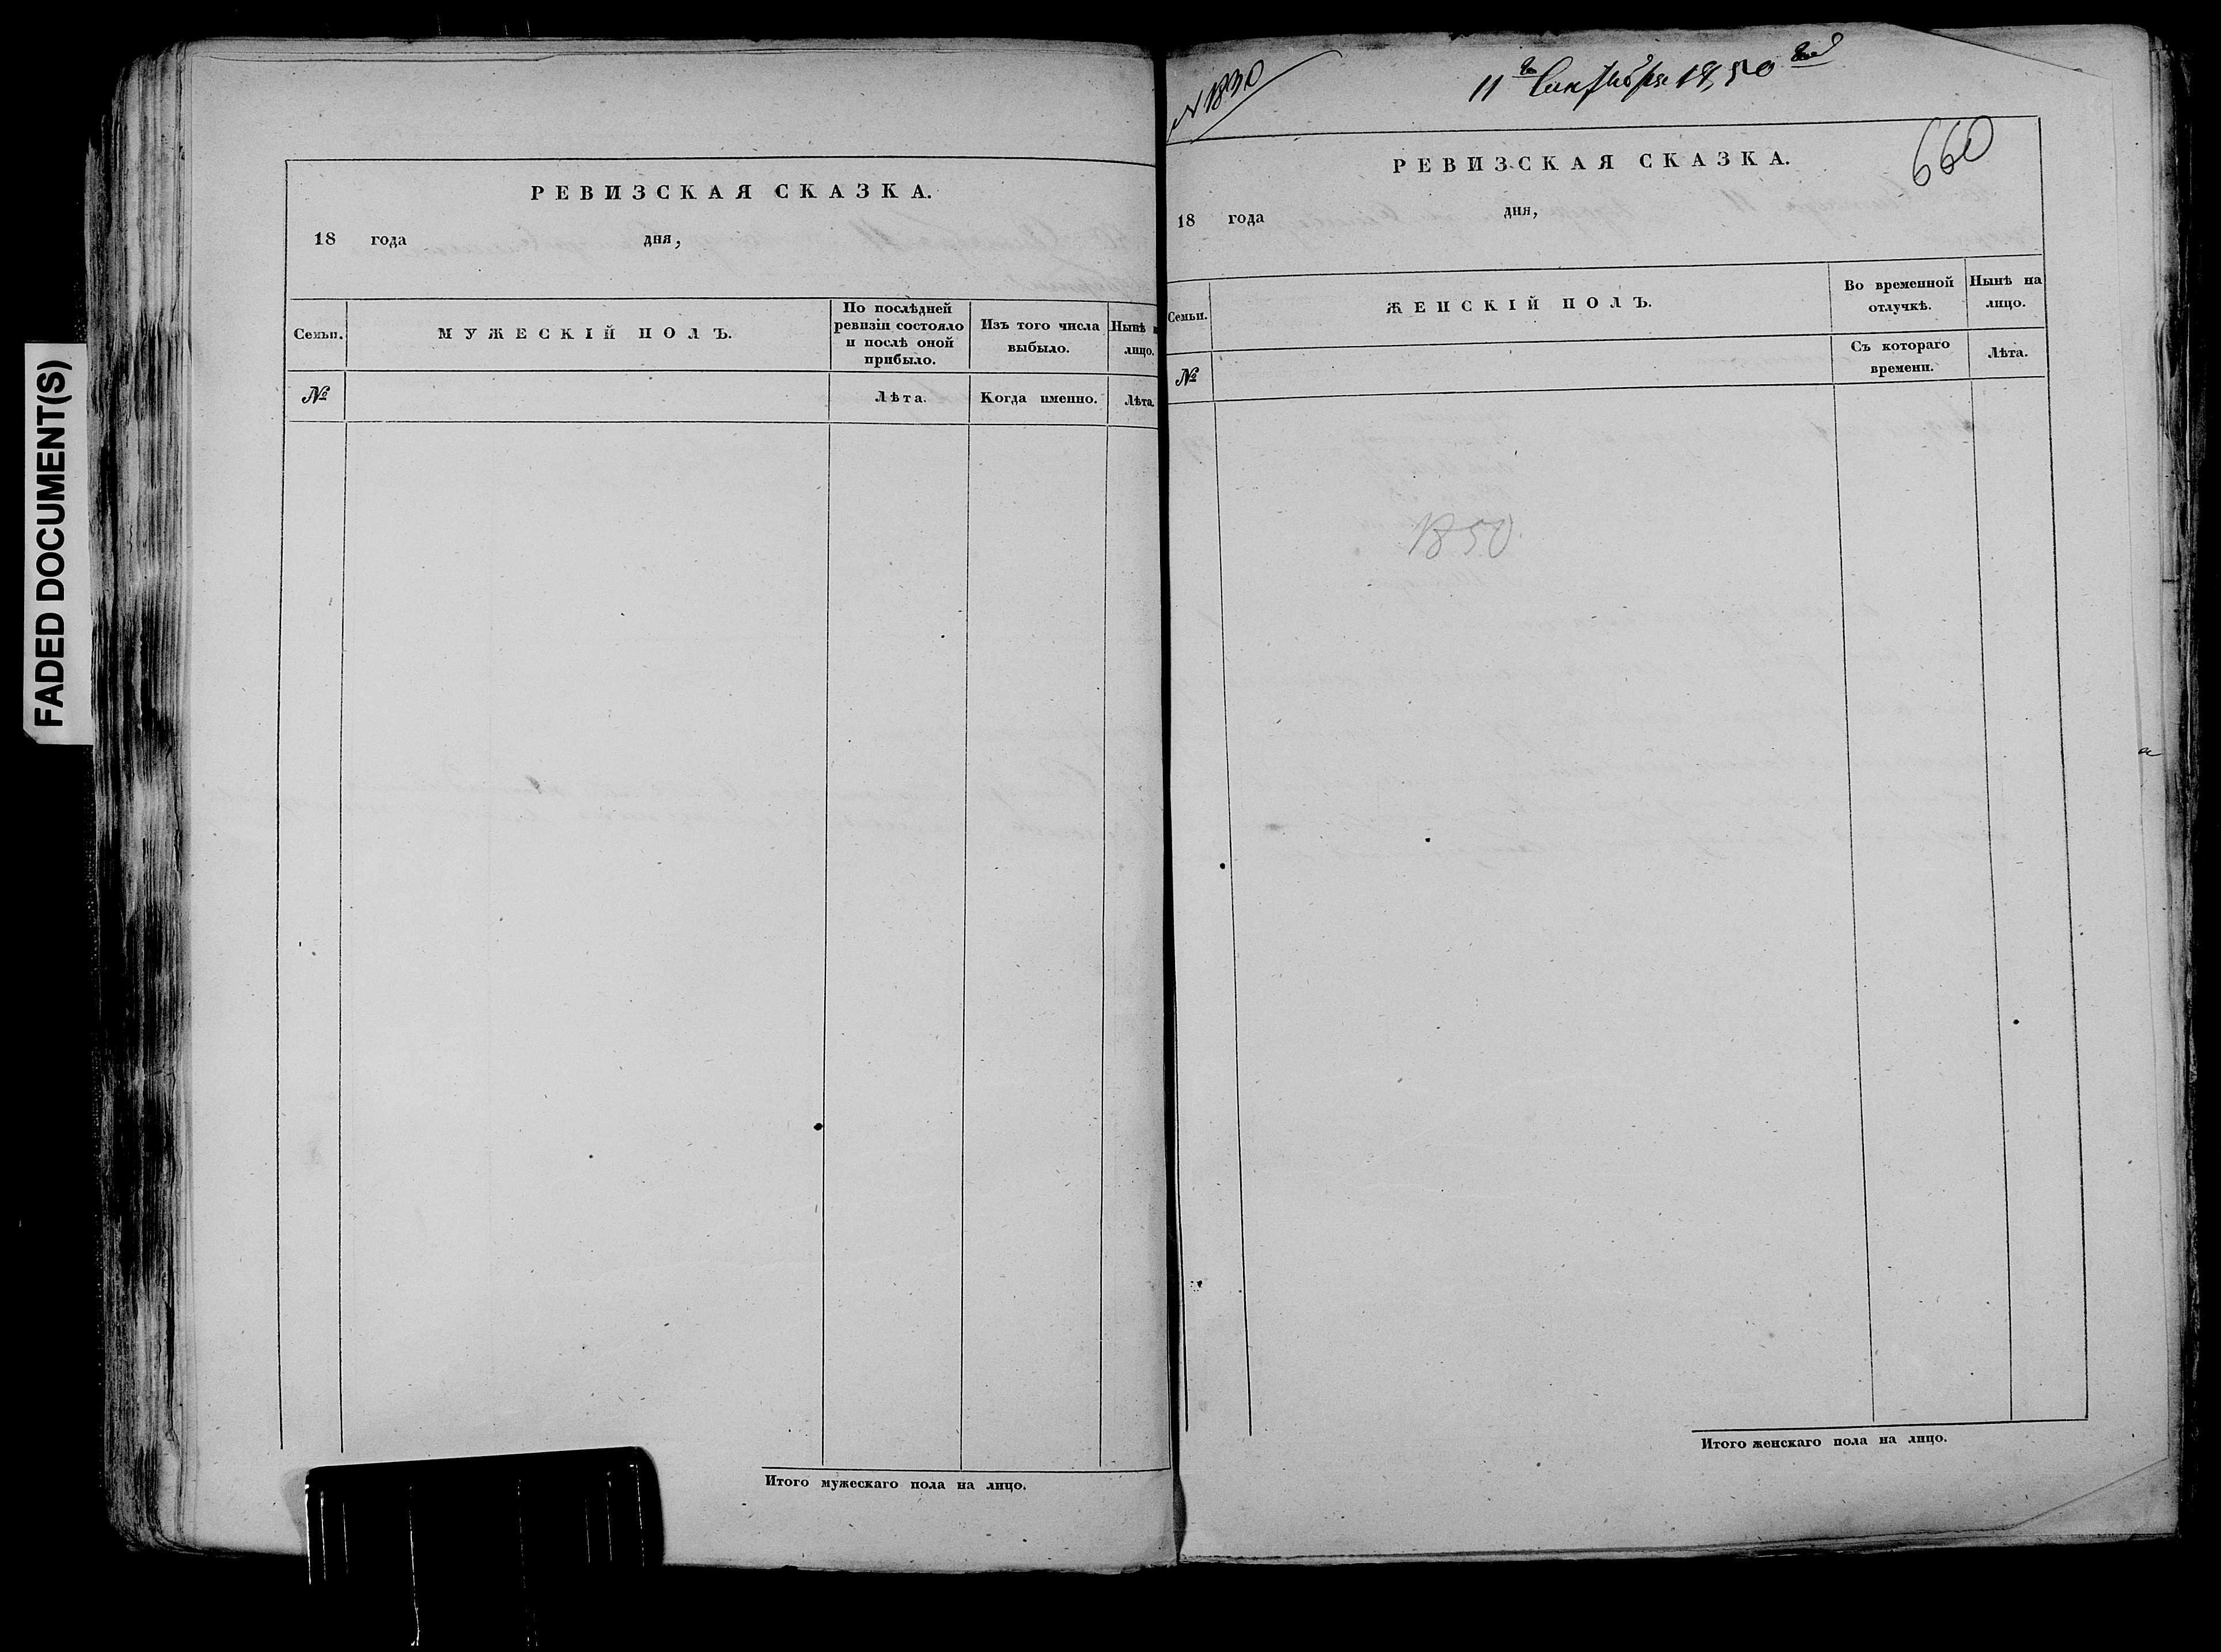 FADED DOCUMENT(S)
РЕВИЗСКАЯ СКАЗКА.
18 года дня,
Семьи.
МУЖЕСКІЙ ПОЛЪ.
По послѣдней
ревизіи состояло
и послѣ оной
прибыло.
Изъ того числа
выбыло.
Нынѣ н
лицо.
№
Лѣта.
Когда именно.
Лѣта
Итого мужескаго пола на лицо.
N 1830
11 го Сентября 1850 года
660
РЕВИЗСКАЯ СКАЗКА.
18 года дня,
Семьи.
ЖЕНСКІЙ ПОЛЪ.
Во временной
отлучкѣ.
Нынѣ на
лицо.
№
Съ котораго
времени.
Лѣта.
1850.
Итого женскаго пола на лицо.